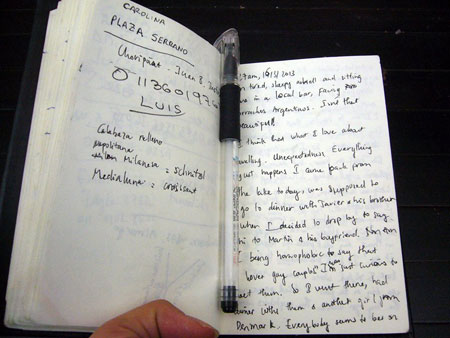 CAROLINA
PLAZA SERRANO
Choripan: Juan B.
LUIS
Calabaza relleno
napolitana
Milanesa = schnitzel
Medialuna = croissant
2013
tired, sleepy
in a local bar, facing
Argentinos. Isn't that
beautiful!
I think that what I love about
travelling. Unexpectedness. Everything
just happens. I came back from
the lake today, was supposed to
go to dinner with Javier & his brother
when I decided to drop by to say
hi to Martin & his boyfriend.
being homophobic to say that
lover gay couple I'm just curious to
meet them. So I went there, had
dinner with them & another girl from
Denmark. Everybody seems to be